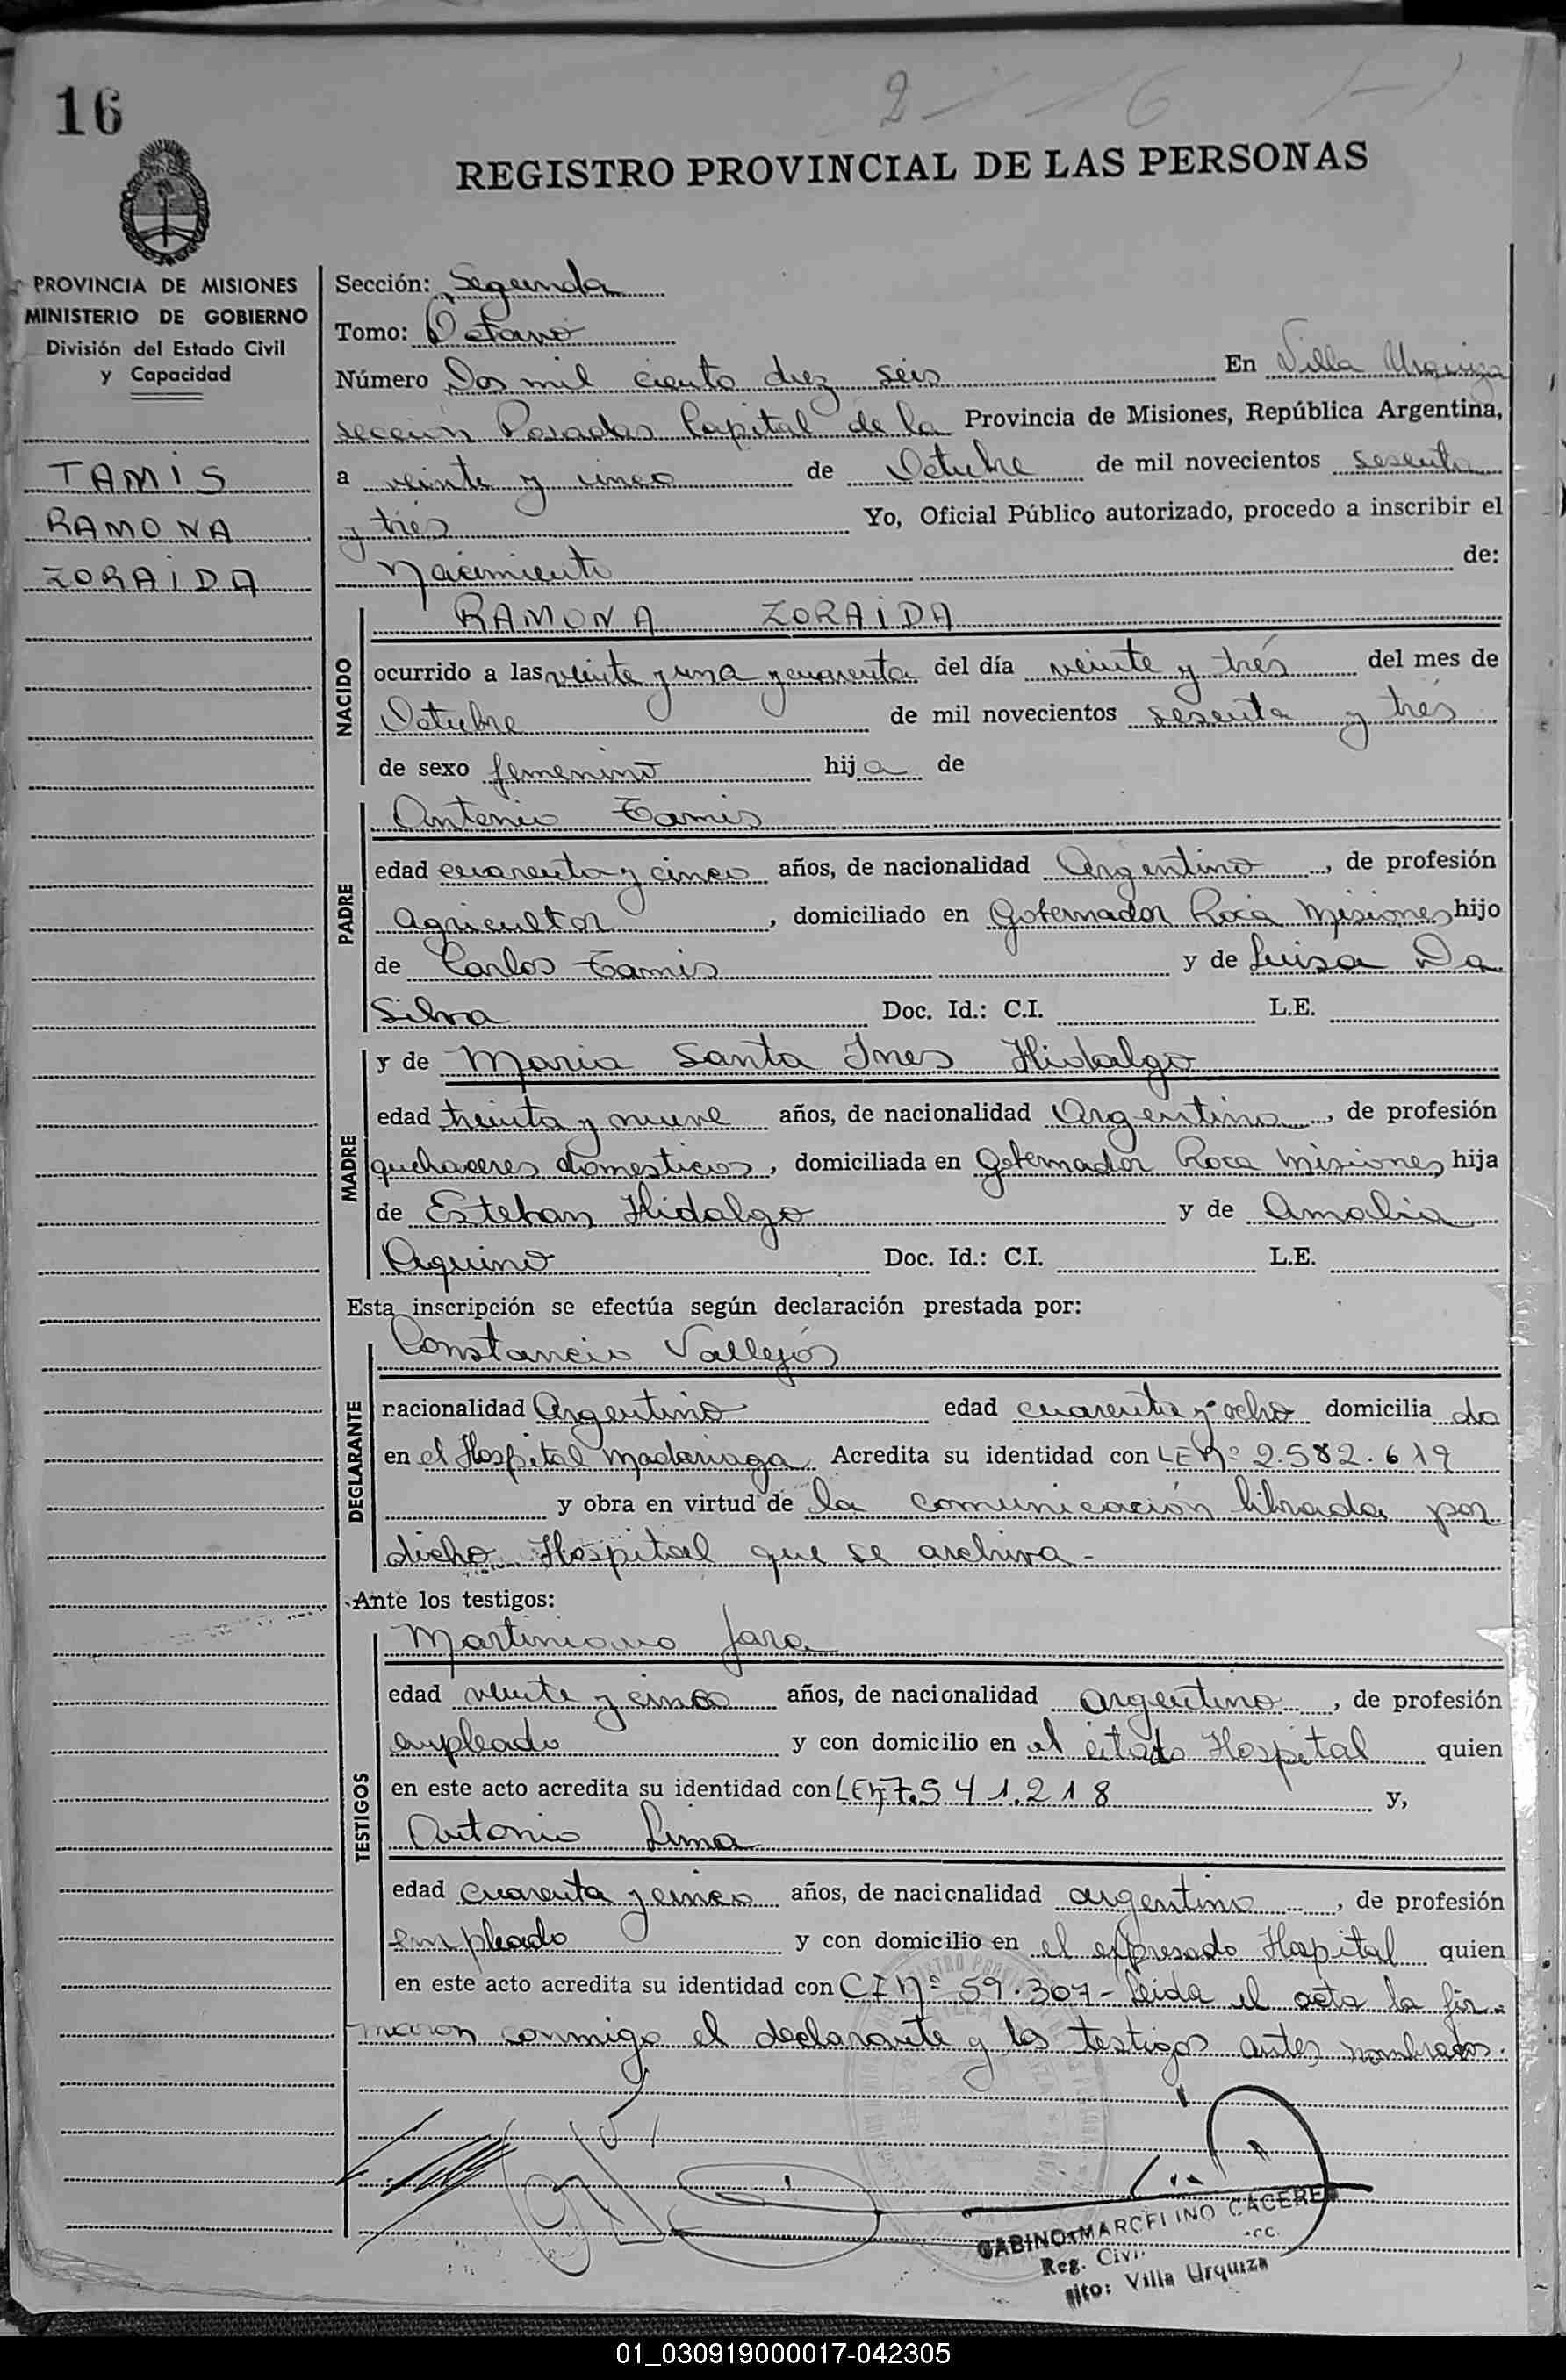 16
2 - - 6
REGISTRO PROVINCIAL DE LAS PERSONAS
PROVINCIA DE MISIONES
MINISTERIO DE GOBIERNO
División del Estado Civil
y Capacidad
TAMIS
RAMONA
ZORAIDA
Sección: Segunda
Tomo: Octavo
Número Dos mil ciento diez seis En Villa Urquiza
sección Posadas Capital de la Provincia de Misiones, República Argentina,
a veinte y cinco de Octubre de mil novecientos sesenta
y tres Yo, Oficial Público autorizado, procedo a inscribir el
Nacimiento de:
RAMONA ZORAIDA
NACIDO
ocurrido a las veinte y una y cuarenta del día veinte y trés del mes de
Octubre de mil novecientos sesenta y trés
de sexo femenino hija de
Antonio Tamis
PADRE
edad cuarenta y cinco años, de nacionalidad Argentino, de profesión
agricultor, domiciliado en Gobernador Roca Misiones hijo
de Carlos Tamis y de Luisa Da
Silva Doc. Id.: C.I. L.E.
y de Maria Santa Ines Hidalgo
MADRE
edad treinta y nueve años, de nacionalidad Argentina, de profesión
quehaceres domesticos, domiciliada en Gobernador Roca Misiones hija
de Esteban Hidalgo y de Amalia
Aquino Doc. Id.: C.I. L.E.
Esta inscripción se efectúa según declaración prestada por:
Constancio Vallejos
DECLARANTE
nacionalidad Argentino edad cuarenta y ocho domiciliado
en el Hospital Madariaga Acredita su identidad con LE Nº 2.582.619
y obra en virtud de la comunicación librada por
dicho Hospital que se archiva -
Ante los testigos:
Martiniano Jara
TESTIGOS
edad veinte y cinco años, de nacionalidad argentino, de profesión
empleado y con domicilio en el citado Hospital quien
en este acto acredita su identidad con LE Nº 7.541.218 y,
Antonio Lima
edad cuarenta y cinco años, de nacionalidad argentino, de profesión
empleado y con domicilio en el expresado Hospital quien
en este acto acredita su identidad con CI Nº 59.307 - Leida el acta la fir-
maron conmigo el declarante y los testigos antes nombrados.
GABINO MARCELINO CACERES
Reg. Civi.
Villa Urquiza
01_030919000017-042305